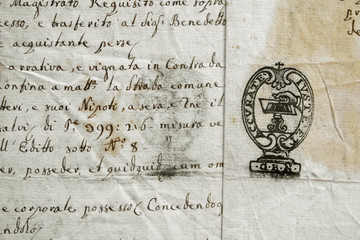 Magistrato Requisito come sopra
cesso, e trasferito al Sig.r Benedetto
e acquistante per se
arrativa, e vignata in Contrada
confina a matt.a la Strada comune
tteri, e suoi Nipote, a sera e
alvi di P.e 399:1:6 misura ve
ll' Editto sotto N.o 8
er, posseder, et quidquid cum om
e corporale, possesso Concedendo
ndolo
ACCURATE IUSTE